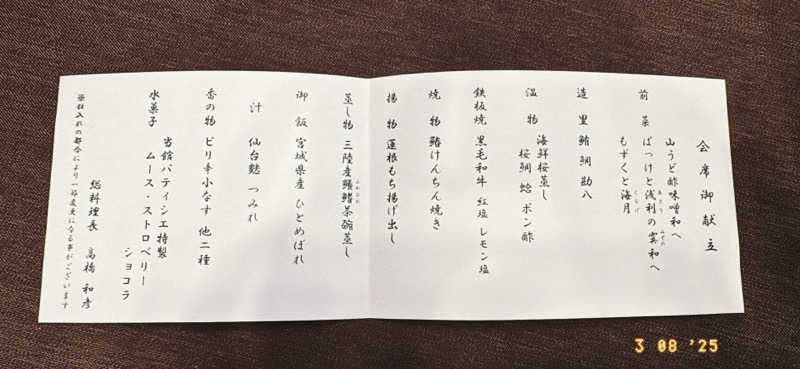 会席御献立
前菜
山うど酢味噌和へ
ばっけと浅利の霙和へ
あさり
みぞれ
もずくと海月
くらげ
造里 鮪 鯛 勘八
温物 海鮮桜蒸し
桜鯛 蛤 ポン酢
鉄板焼 黒毛和牛 紅塩 レモン塩
焼物 鰆けんちん焼き
揚物 蓮根もち揚げ出し
蒸し物 三陸産鱶鰭茶碗蒸し
ふかひれ
御飯 宮城県産 ひとめぼれ
汁 仙台麩 つみれ
香の物 ピリ辛小なす 他二種
水菓子
当館パティシエ特製
ムース・ストロベリー
ショコラ
総料理長 高橋 和彦
※仕入れの都合により一部変更になる事がございます
3 08 '25